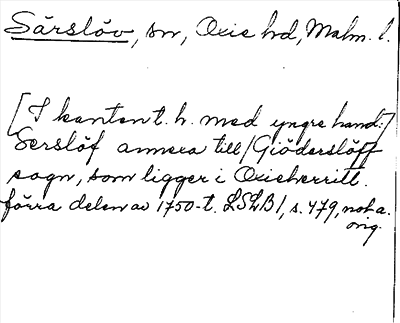 Särslöv, sn, Oxie hd, Malm. l.
[I kanten t. h. med yngre hand:]
Serslöf annexa till/Giöderslöff
sogn, som ligger i Oxieherritt.
förra delen av 1750-t. LSLB1, s. 479, not a.
orig.